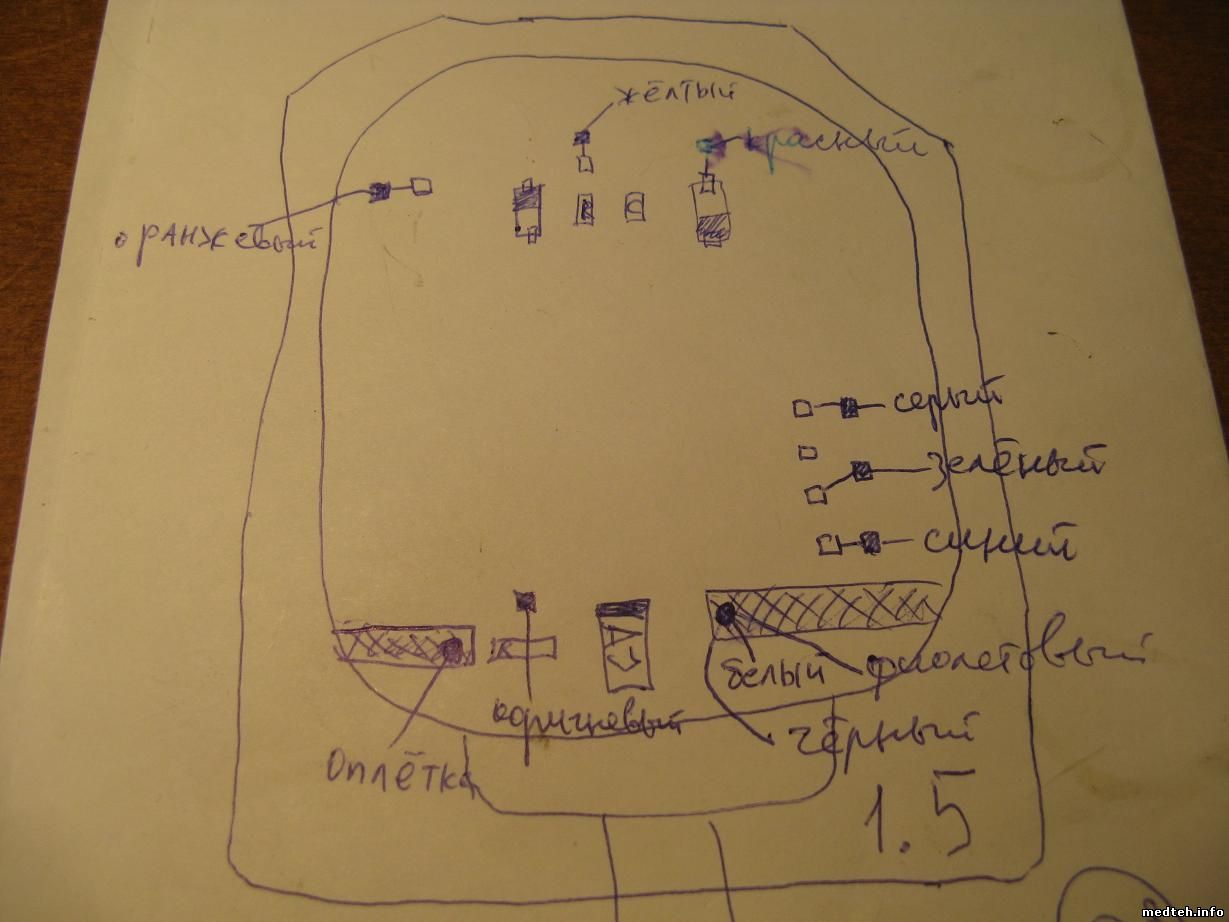 жёлтый
красный
оранжевый
R
C
серый
зелёный
синий
R
AC
белый
фиолетовый
коричневый
чёрный
Оплётка
1.5
medteh.info